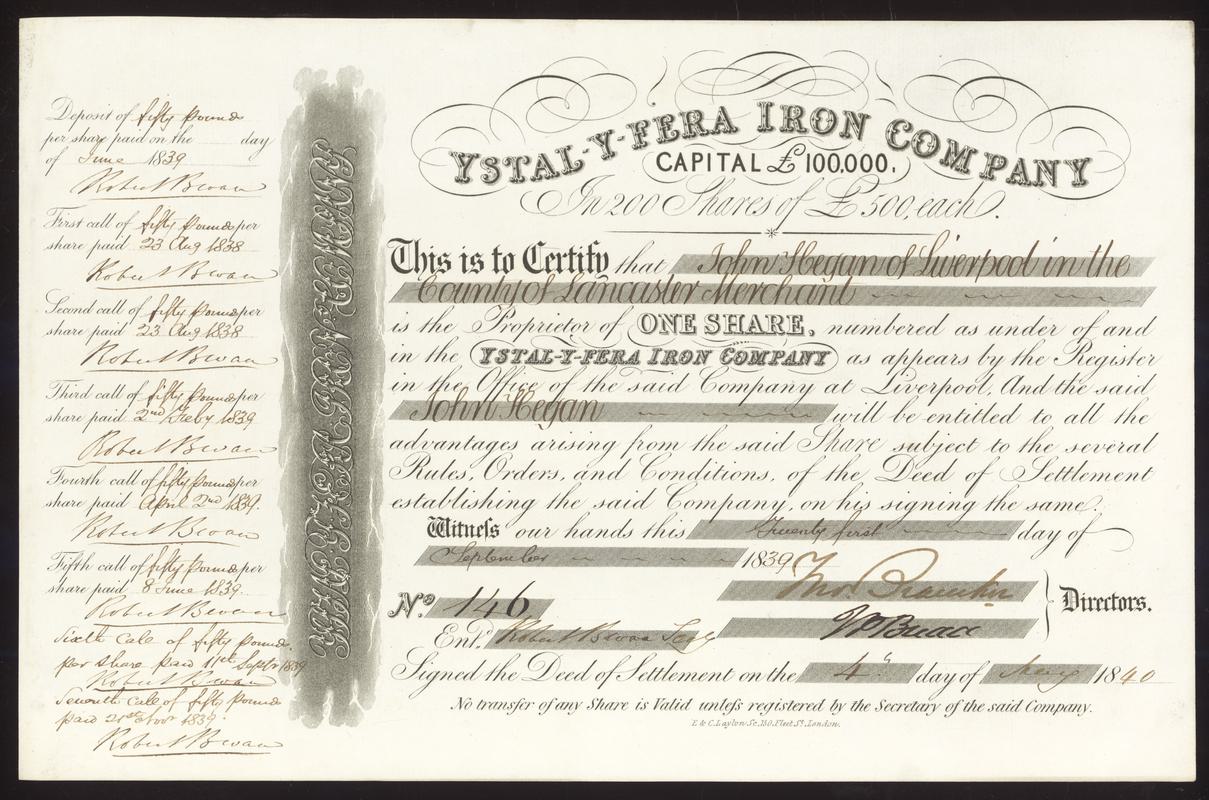 Deposit of fifty Pounds
per share paid on the day
of June 1839
Robert Bevan
First call of fifty Pounds per
share paid 23 Aug 1838
Robert Bevan
Second call of fifty Pounds per
share paid 23 Aug 1838
Robert Bevan
Third call of fifty Pounds per
share paid 2nd Feby 1839
Robert Bevan
Fourth call of fifty Pounds per
share paid April 2nd 1839.
Robert Bevan
Fifth call of fifty Pounds per
share paid 8 June 1839.
Robert Bevan
Sixth call of fifty Pounds
per share paid 11th Septr 1839
Robert Bevan
Seventh call of fifty Pounds
paid 21st Novr 1839.
Robert Bevan
YSTAL-Y-FERA IRON COMPANY
CAPITAL £100,000.
In 200 Shares of £500, each.
This is to Certify that John Hegan of Liverpool in the
County of Lancaster Merchant
is the Proprietor of ONE SHARE, numbered as under of and
in the YSTAL-Y-FERA IRON COMPANY as appears by the Register
in the Office of the said Company at Liverpool, And the said
John Hegan will be entitled to all the
advantages arising from the said Share subject to the several
Rules, Orders, and Conditions, of the Deed of Settlement
establishing the said Company, on his signing the same.
Witness our hands this Twenty first day of
September 1839
No. 146
Directors.
Entd. Robert Bevan Secy
Signed the Deed of Settlement on the 4th day of May 1840
No transfer of any Share is Valid unless registered by the Secretary of the said Company.
E & C. Layton Sc. 150, Fleet St. London.